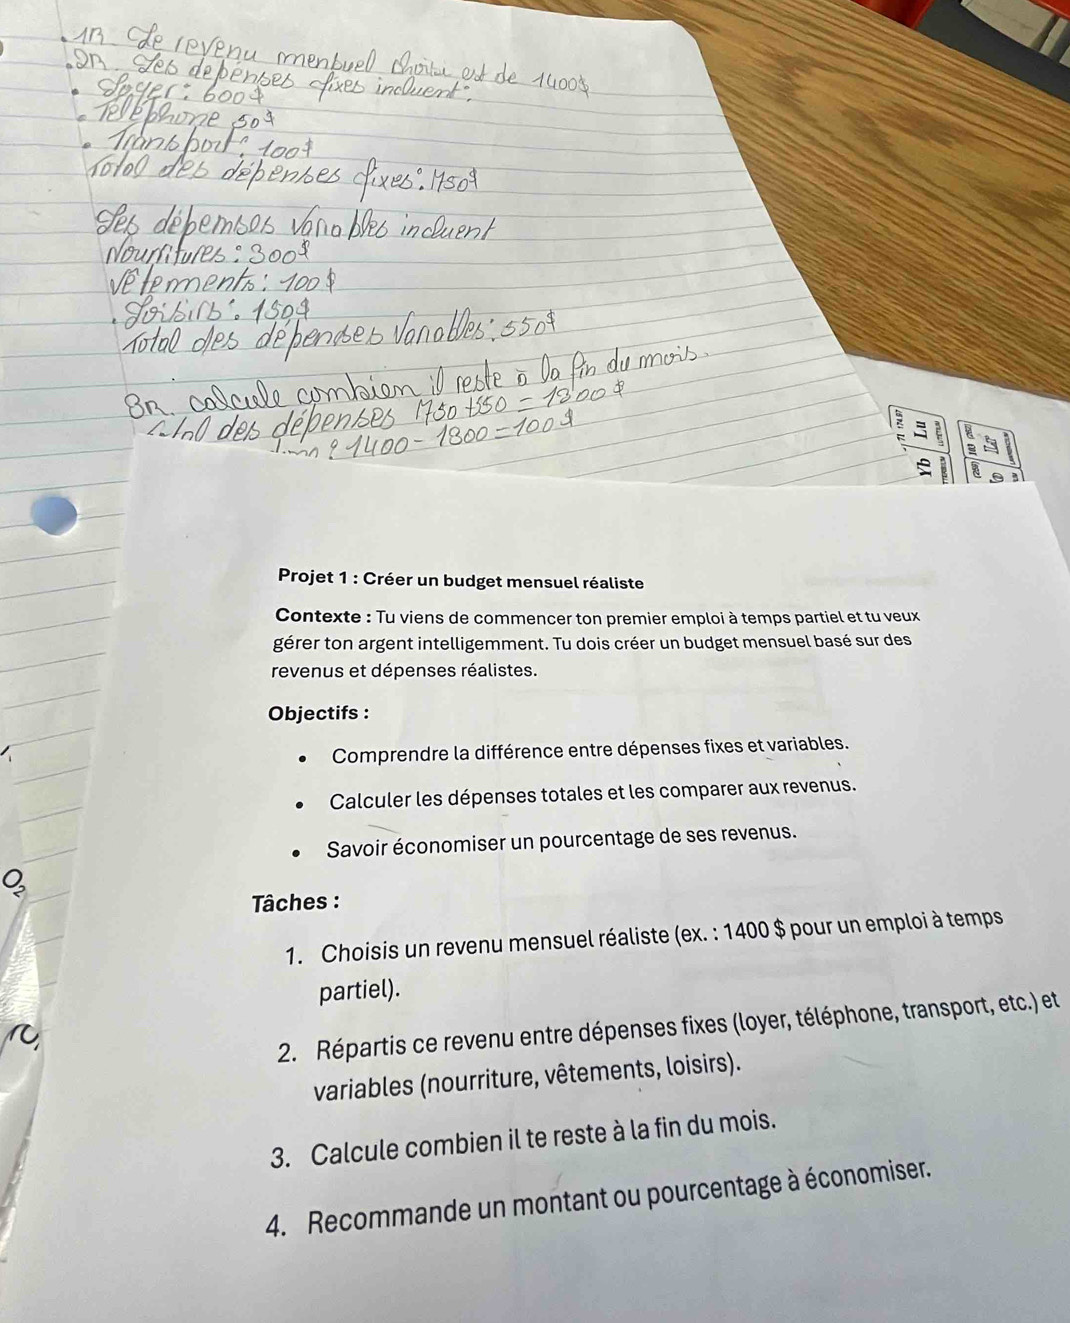 1n. Le revenu menbuel choisi est de 1400$
2n. Les depenses fixes incluent:
Loyer: 600$
Telephone 50$
Transport: 100$
Total des dépenses fixes: 1750$
Les dépenses variables incluent
Nourritures: 300$
vêtements: 100$
Loisirs: 150$
Total des dépenses variables: 550$
3n. calcule combien il reste à la fin du mois.
des dépenses 1750 + 550 = 1300$
: 1400 - 1300 = 100$
71 174.97
Yb Lu
LUTETIUM
(259) 103 (262)
Projet 1 : Créer un budget mensuel réaliste
Contexte : Tu viens de commencer ton premier emploi à temps partiel et tu veux
gérer ton argent intelligemment. Tu dois créer un budget mensuel basé sur des
revenus et dépenses réalistes.
Objectifs :
• Comprendre la différence entre dépenses fixes et variables.
• Calculer les dépenses totales et les comparer aux revenus.
• Savoir économiser un pourcentage de ses revenus.
O₂
Tâches :
1. Choisis un revenu mensuel réaliste (ex. : 1400 $ pour un emploi à temps
partiel).
2. Répartis ce revenu entre dépenses fixes (loyer, téléphone, transport, etc.) et
variables (nourriture, vêtements, loisirs).
3. Calcule combien il te reste à la fin du mois.
4. Recommande un montant ou pourcentage à économiser.